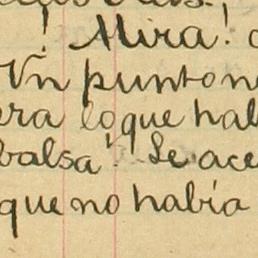 ! Mira!
Un punto n
era lo que hab
balsa. Se ace
que no había